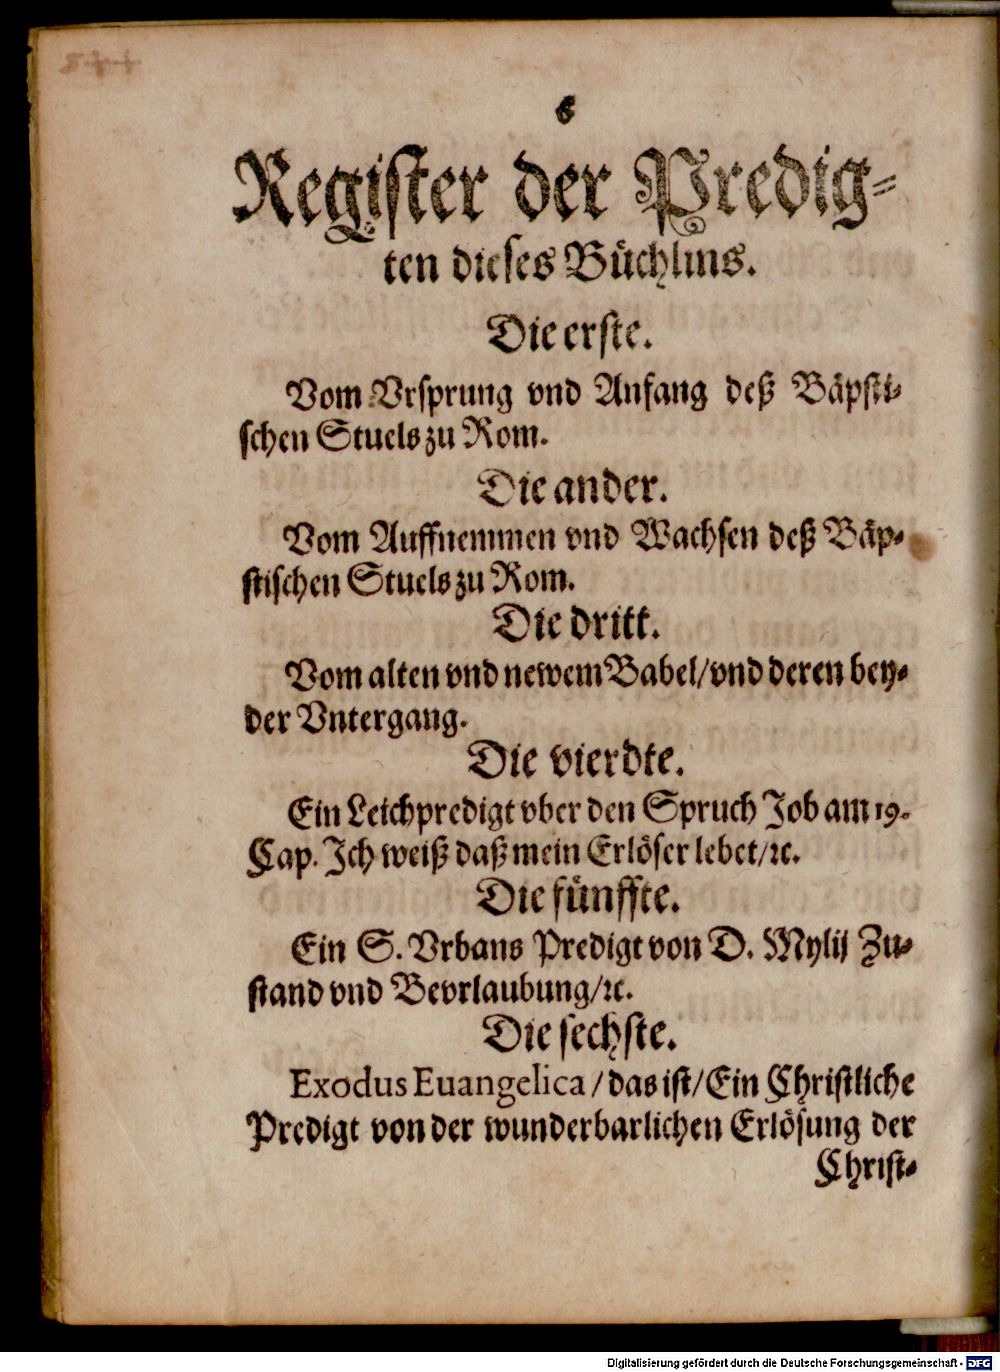 6
Register der Predig⸗
ten dieses Buͤchlins.
Die erste.
Vom Vrsprung vnd Anfang deß Baͤpsti⸗
schen Stuels zu Rom.
Die ander.
Vom Auffnemmen vnd Wachsen deß Baͤp⸗
stischen Stuels zu Rom.
Die dritt.
Vom alten vnd newem Babel/vnd deren bey⸗
der Vntergang.
Die vierdte.
Ein Leichpredigt vber den Spruch Job am 19.
Cap. Ich weiß daß mein Erloͤser lebet/ꝛc.
Die fuͤnffte.
Ein S. Vrbans Predigt von D. Mylij Zu⸗
stand vnd Bevrlaubung/ꝛc.
Die sechste.
Exodus Euangelica/das ist/Ein Christliche
Predigt von der wunderbarlichen Erloͤsung der
Christ⸗
Digitalisierung gefördert durch die Deutsche Forschungsgemeinschaft - DFG